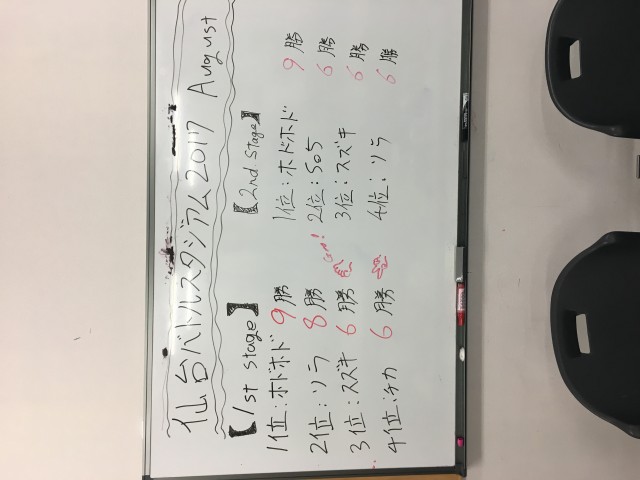 仙台バトルスタジアム2017 August
【1st Stage】
1位:ホドホド 9勝
2位:ソラ 8勝
3位:スズキ 6勝
4位:チカ 6勝
【2nd Stage】
1位:ホドホド 9勝
2位:SoS 6勝
3位:スズキ 6勝
4位:ソラ 6勝